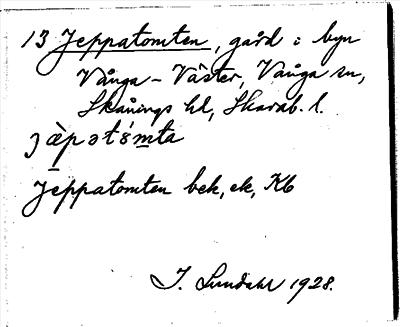 13 Jeppatomten, gård i byn
Vånga - Väster, Vånga sn,
Skånings hd, Skarab. l.
jæ̀pətómta
Jeppatomten bek, ek, Kb
I. Lundahl 1928.